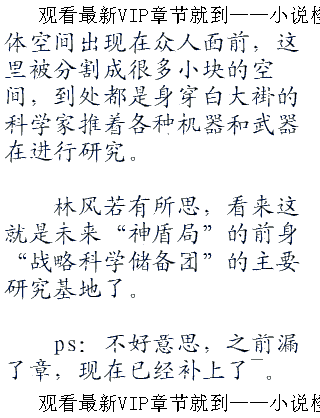 观看最新VIP章节就到——小说
体空间出现在众人面前，这
里被分割成很多小块的空
间，到处都是身穿白大褂的
科学家推着各种机器和武器
在进行研究。
林风若有所思，看来这
就是未来“神盾局”的前身
“战略科学储备团”的主要
研究基地了。
ps：不好意思，之前漏
了章，现在已经补上了 。
观看最新VIP章节就到——小说